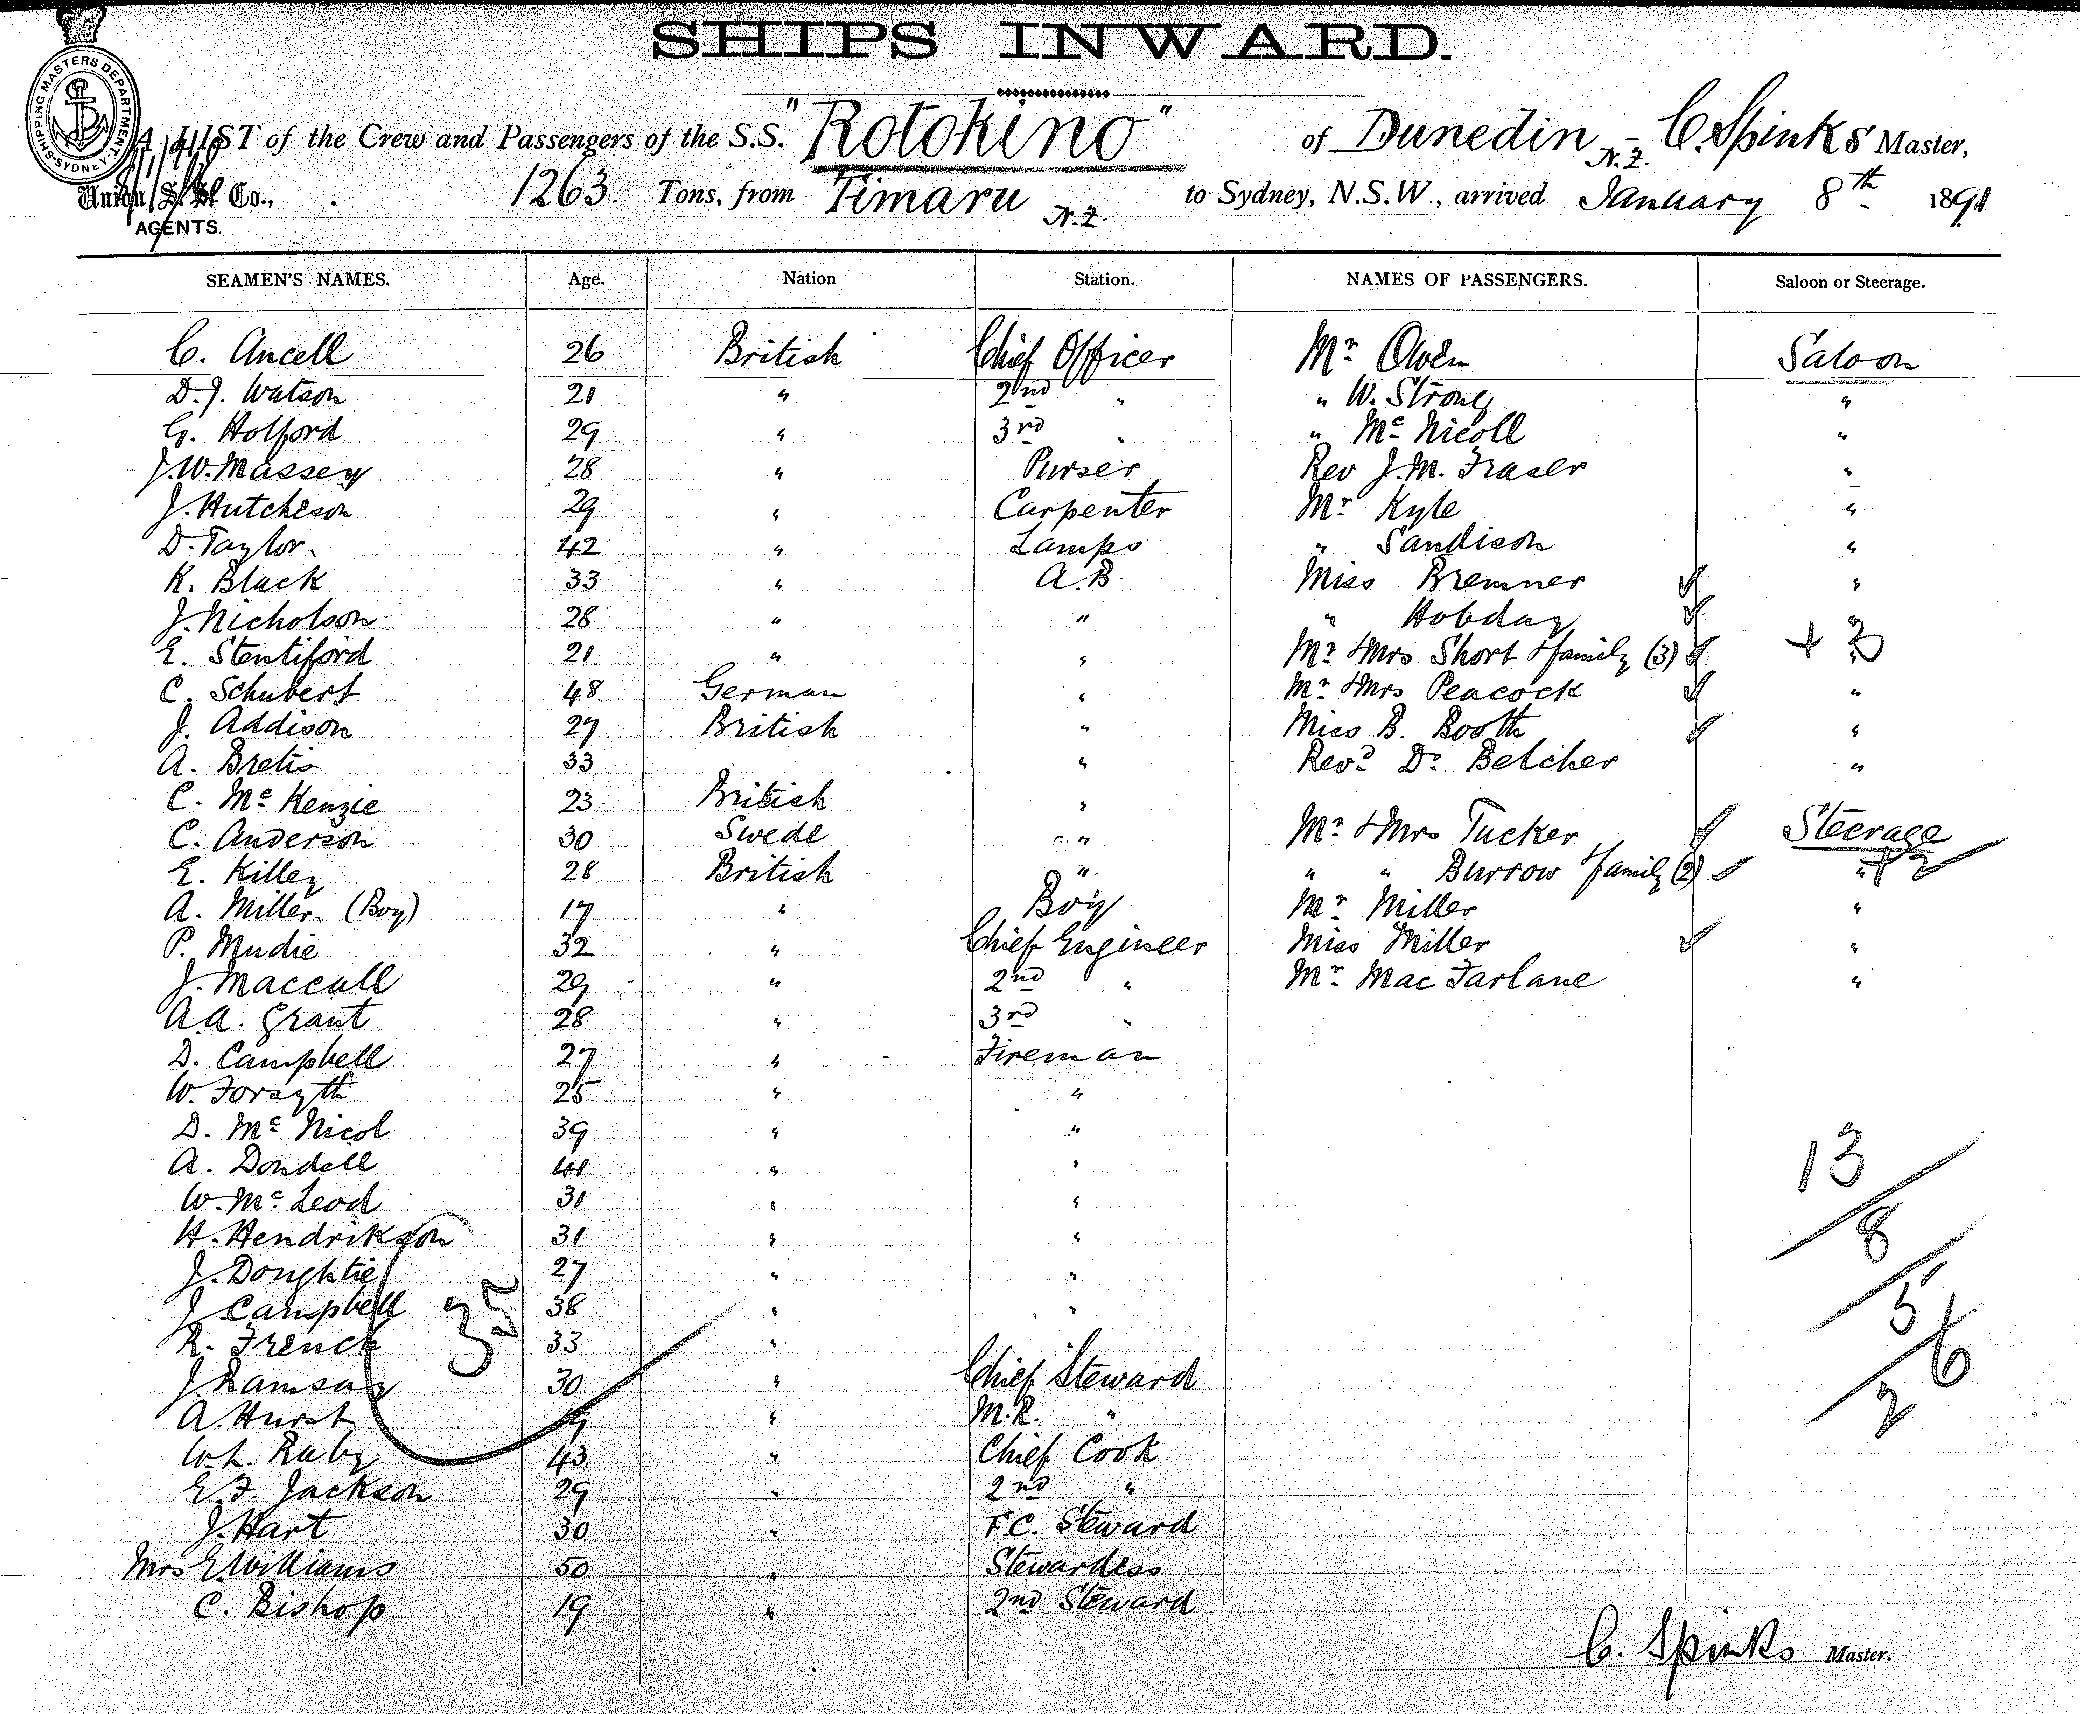 SHIPS INWARD.
SHIPPING MASTERS DEPARTMENT SYDNEY
A LIST of the Crew and Passengers of the S.S. "Rotokino" of Dunedin N.Z. C. Spinks Master,
Union S.S. Co., 1263 Tons, from Timaru N.Z. to Sydney, N.S.W., arrived January 8th 1891
AGENTS.
SEAMEN'S NAMES. Age. Nation Station. NAMES OF PASSENGERS. Saloon or Steerage.
C. Ancell 26 British Chief Officer Mr Owen Saloon
D.J. Watson 21 " 2nd " " W. Strong "
G. Holford 29 " 3rd " " Mc Nicoll "
J.W. Massey 28 " Purser Rev J.M. Fraser "
J. Hutcheson 29 " Carpenter Mr Kyle "
D. Taylor 42 " Lamps " Sandison "
K. Black 33 " A.B Miss Bremner "
J. Nicholson 28 " " " Hobday "
E. Stentiford 21 " " Mr & Mrs Short & family (3) + 3 "
C. Schubert 48 German " Mr & Mrs Peacock "
J. Addison 27 British " Miss B. Booth "
A. Bretis 33 " Revd Dr Belcher "
C. Mc Kenzie 23 British "
C. Anderson 30 Swede " Mr & Mrs Tucker Steerage
E. Killey 28 British " " " Burrow & family (2) " + 2
A. Miller (Boy) 17 " Boy Mr Miller "
P. Mudie 32 " Chief Engineer Miss Miller "
J. Maccall 29 " 2nd " Mr Mac Farlane "
A.A. Grant 28 " 3rd "
D. Campbell 27 " Fireman
W. Forsyth 25 " "
D. Mc Nicol 39 " "
A. Dondell 41 " " 13
W. Mc Leod 31 " "
H. Hendrikson 31 " " 8
J. Doughtie 27 " "
J. Campbell 38 " " 5
R. French 33 " 6
35
J. Ramsay 30 " Chief Steward
A Hurst 19 " M.R. " 2
W.L. Raby 43 " Chief Cook
E.F. Jackson 29 " 2nd "
J. Hart 30 " F.C. Steward
Mrs E Williams 50 " Stewardess
C. Bishop 19 " 2nd Steward
C. Spinks Master.